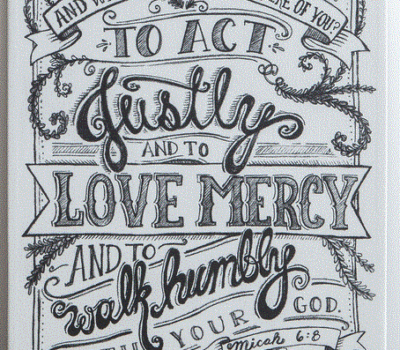 AND W RE OF YOU?
TO ACT
Justly
AND TO
LOVE MERCY
AND TO
walk humbly
YOUR GOD.
Micah 6:8